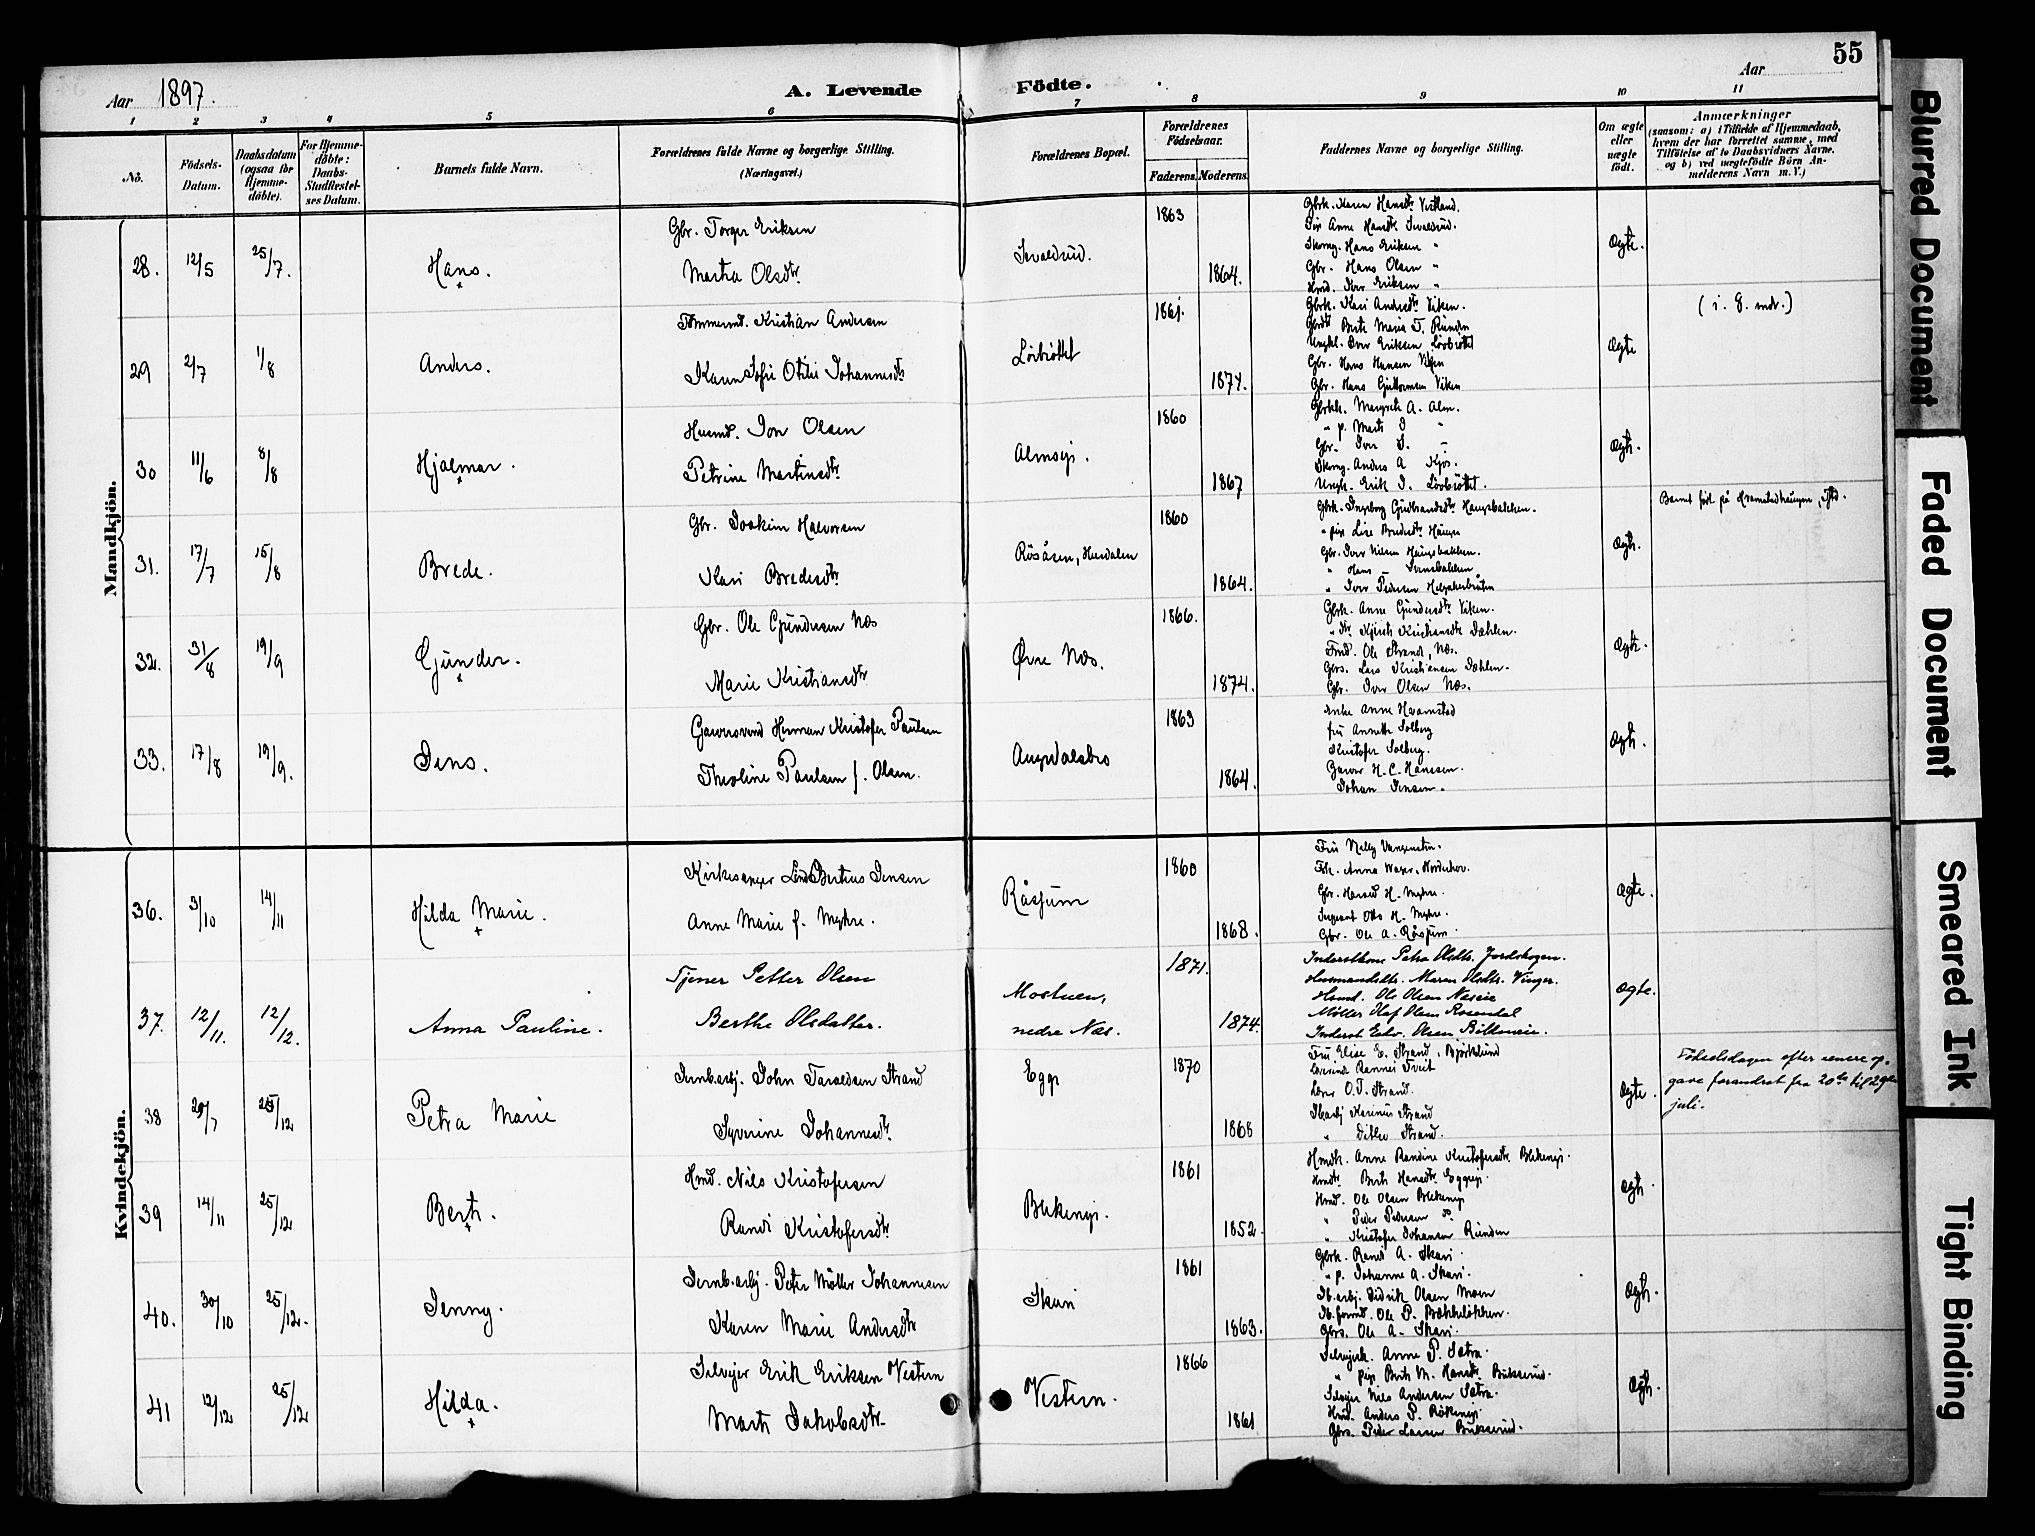 Aar 1897.
A. Levende Födte.
Aar
55
1 2 3 4 5 6 7 8 9 10 11
No.
Födsels-Datum.
Daabsdatum (ogsaa for Hjemme-döbte).
For Hjemme-döbte: Daabs-Stadfæstel-ses Datum.
Barnets fulde Navn.
Forældrenes fulde Navne og borgerlige Stilling.
(Næringsvei.)
Forældrenes Bopæl.
Forældrenes Födselsaar.
Faderens. Moderens.
Faddernes Navne og borgerlige Stilling.
Om ægte eller uægte födt.
Anmærkninger
(saasom: a) i Tilfælde af Hjemmedaab, hvem der har forrettet samme, med Tilföielse af to Daabsvidners Navne. og b) ved uægtefödte Börn An-melderens Navn m. V.)
Mandkjön.
28. 12/5 25/7. Hans.
Gbr. Torger Eriksen
Marta Olsdtr.
1863
1864.
Gbrk. Karen Hansdtr. Vestland.
Anne Hansdtr.
Hans Eriksen "
Gbr. Hans Olsen "
Iver Eriksen "
Ægte.
29 2/7 1/8 Anders.
Tömmermd. Kristian Andersen
Karen Sofie Otilie Johannesdtr
Lörbröttet
1861.
1874.
Gbrk. Kari Andersdtr. Viken.
Berte Maria T. Runden
Ungkl. Iver Eriksen Lövbröttet
Gbr. Hans Hansen Viken
Gbr. Hans Guttormsen Viken
Ægte
( i. 8. mdr.)
30 11/6 8/8 Hjalmar.
Husmd. Jon Olsen
Petrine Martinsdtr.
Almseje.
1860
1867
Gbrkk. Margrete A. Alm.
" p. Marte I "
Gbr. Iver I. "
Skomg. Anders A Kjos.
Ungk. Erik I. Lövbröttet.
Ægte.
31. 17/7 15/8 Brede.
Gbr. Joakim Halvorsen
Kari Bredesdtr.
Rösåsen, Hurdalen
1860
1864.
Gbrk. Ingeborg Gudbrandsdtr Haugsbakken.
" pige Lise Bredesdtr. Haugen
Gbr. Iver Nilsen Haugsbakken.
" Hans
" Iver Pedersen
Ægte.
Barnet födt på
32. 31/8 19/9 Gunder.
Gbr. Ole Gundersen Næs
Marie Kristiansdtr
Övre Næs.
1866.
1874.
Gbrk. Anne Gundersdtr. Viken.
" dtr. Kjersti Kristiansdtr Dæhlen.
Ole Strande, Næs.
Gbrs. Lars Kristiansen Dæhlen.
Gbr. Iver Olsen Næs.
Ægte.
33. 17/8 19/9. Jens.
Garversvend Herman Kristofer Paulsen
Theoline Paulsen f. Olsen.
Augedalsbro
1863
1864.
Enke Anne Hvamstad
fru Annette Solberg
Kristofer Solberg.
Garver H. C. Hansen.
Johan Jensen.
Ægte.
Kvindekjön.
36. 3/10 14/11 Hilda Marie.
Kirkesanger Bertius Jensen
Anne Marie f. Myhre.
Råsjum
1860
1868.
Fru Nelly Vangensten.
Frk. Anna Norderhov.
Gbr. Hansd H. Myhre.
Sergeant Otto H. Myhre.
Gbr. Ole A. Råsjum.
Ægte.
37. 12/11. 12/12. Anna Pauline.
Tjener Petter Olsen
Berthe Olsdatter.
Mostuen,
nedre Næs.
1871.
1874.
Inderstkone Petra Olsdtr. Jordskogen.
Husmandsdtr. Maren Olsdtr. Vinger.
Husmd. Ole Olsen Næseie
Möller Olaf Olsen Rosendal
Inderst Edv. Olsen
Ægte.
38 29/7 25/12 Petra Marie
Jernb.arbj. John Taraldsen Strand
Syverine Johannesdtr.
Egge
1870
1868
Fru Elise E. Strand, Björklund
Rannei Tveit
Lærer O. T. Strand.
Karinius Strand
" Ditlev Strand.
Ægte.
Födselsdagen efter senere op-
gave forandret fra 20de til 29de
juli.
39 14/11 25/12 Berte.
Hmd. Nils Kristofersen
Randi Kristofersdtr.
Blekenge.
1861
1852.
Hmdk. Anne Randine Kristofersdtr. Blekenge.
Berte Hansdtr. Eggeeje.
Hmd. Ole Olsen Blekenge
" Peder Pedersen
" Kristofer Johansen Runden
Ægte.
40. 30/10 25/12. Jenny.
Jernb.arbj. Peter Möller Johannesen
Karen Marie Andersdtr
Skari
1861
1863.
Gbrk. Randi A. Skari.
" p. Johanne A. Skari.
Jb.arbj. Didrik Olsen Moen
Jb.formd. Ole P. Bækkelökken.
Gbrs. Ole A. Skari.
Ægte.
41 12/12 25/12 Hilda.
Selvejer Erik Eriksen Vestern
Marte Jakobsdtr.
Vestern.
1866
1861
Selvejerk. Anne P. Sætra.
" pige Berte M. Hansdtr. Bukserud.
Selvejer Nils Andersen Sætra.
Hmd. Anders P. Rökenge.
Gbrs. Peder Larsen Bukserud.
Ægte.
Blurred Document
Faded Document
Smeared Ink
Tight Binding